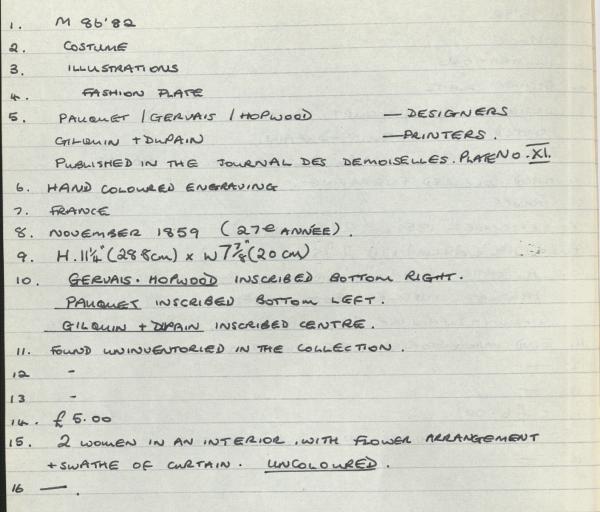 1. M 86'82
2. COSTUME
3. ILLUSTRATIONS
4. FASHION PLATE
5. PAUQUET / GERVAIS / HOPWOOD — DESIGNERS
GILQUIN + DUPAIN — PRINTERS.
PUBLISHED IN THE JOURNAL DES DEMOISELLES. PLATE NO. XI.
6. HAND COLOURED ENGRAVING
7. FRANCE
8. NOVEMBER 1859 (27e ANNÉE).
9. H. 11¼" (28.8cm) x W 7⅞" (20 cm)
10. GERVAIS. HOPWOOD INSCRIBED BOTTOM RIGHT.
PAUQUET INSCRIBED BOTTOM LEFT.
GILQUIN + DUPAIN INSCRIBED CENTRE.
11. FOUND UNINVENTORIED IN THE COLLECTION.
12 -
13 -
14. £ 5.00
15. 2 WOMEN IN AN INTERIOR, WITH FLOWER ARRANGEMENT
+ SWATHE OF CURTAIN. UNCOLOURED.
16 —.